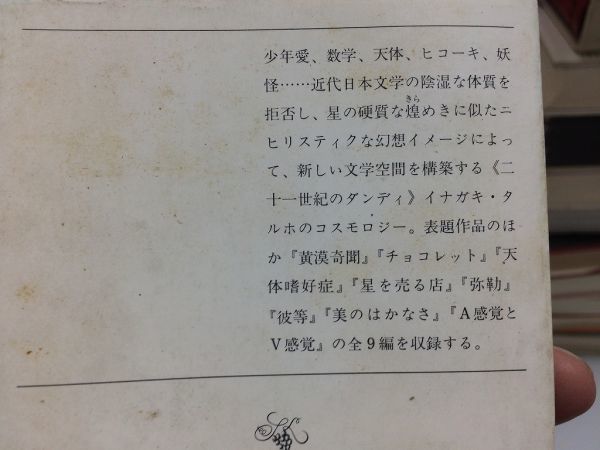 少年愛、数学、天体、ヒコーキ、妖
怪……近代日本文学の陰湿な体質を
拒否し、星の硬質な煌めきに似たニ
ヒリスティクな幻想イメージによっ
て、新しい文学空間を構築する《二
十一世紀のダンディ》イナガキ・タ
ルホのコスモロジー。表題作品のほ
か『黄漠奇聞』『チョコレット』『天
体嗜好症』『星を売る店』『弥勒』
『彼等』『美のはかなさ』『A感覚と
V感覚』の全9編を収録する。